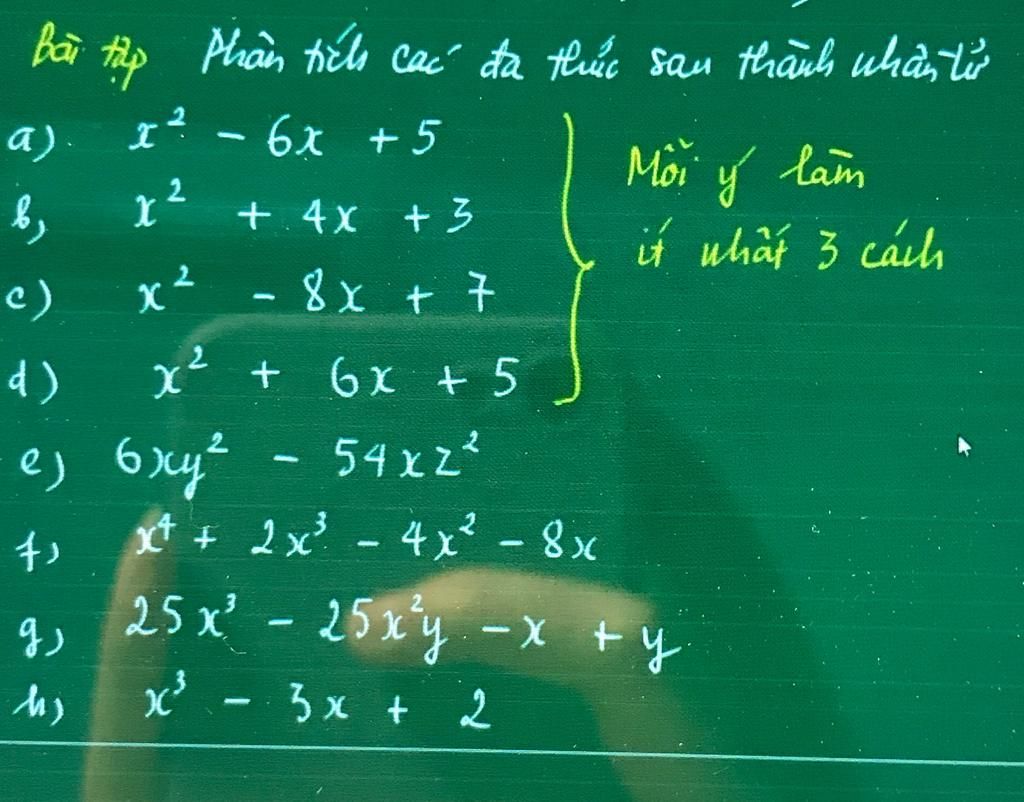 Bài tập Phân tích các đa thức sau thành nhân tử
a) x² - 6x + 5
b, x² + 4x + 3
c) x² - 8x + 7
d) x² + 6x + 5
Mỗi ý làm
ít nhất 3 cách
e) 6xy² - 54xz²
f, x⁴ + 2x³ - 4x² - 8x
g, 25x³ - 25x²y - x + y
h) x³ - 3x + 2